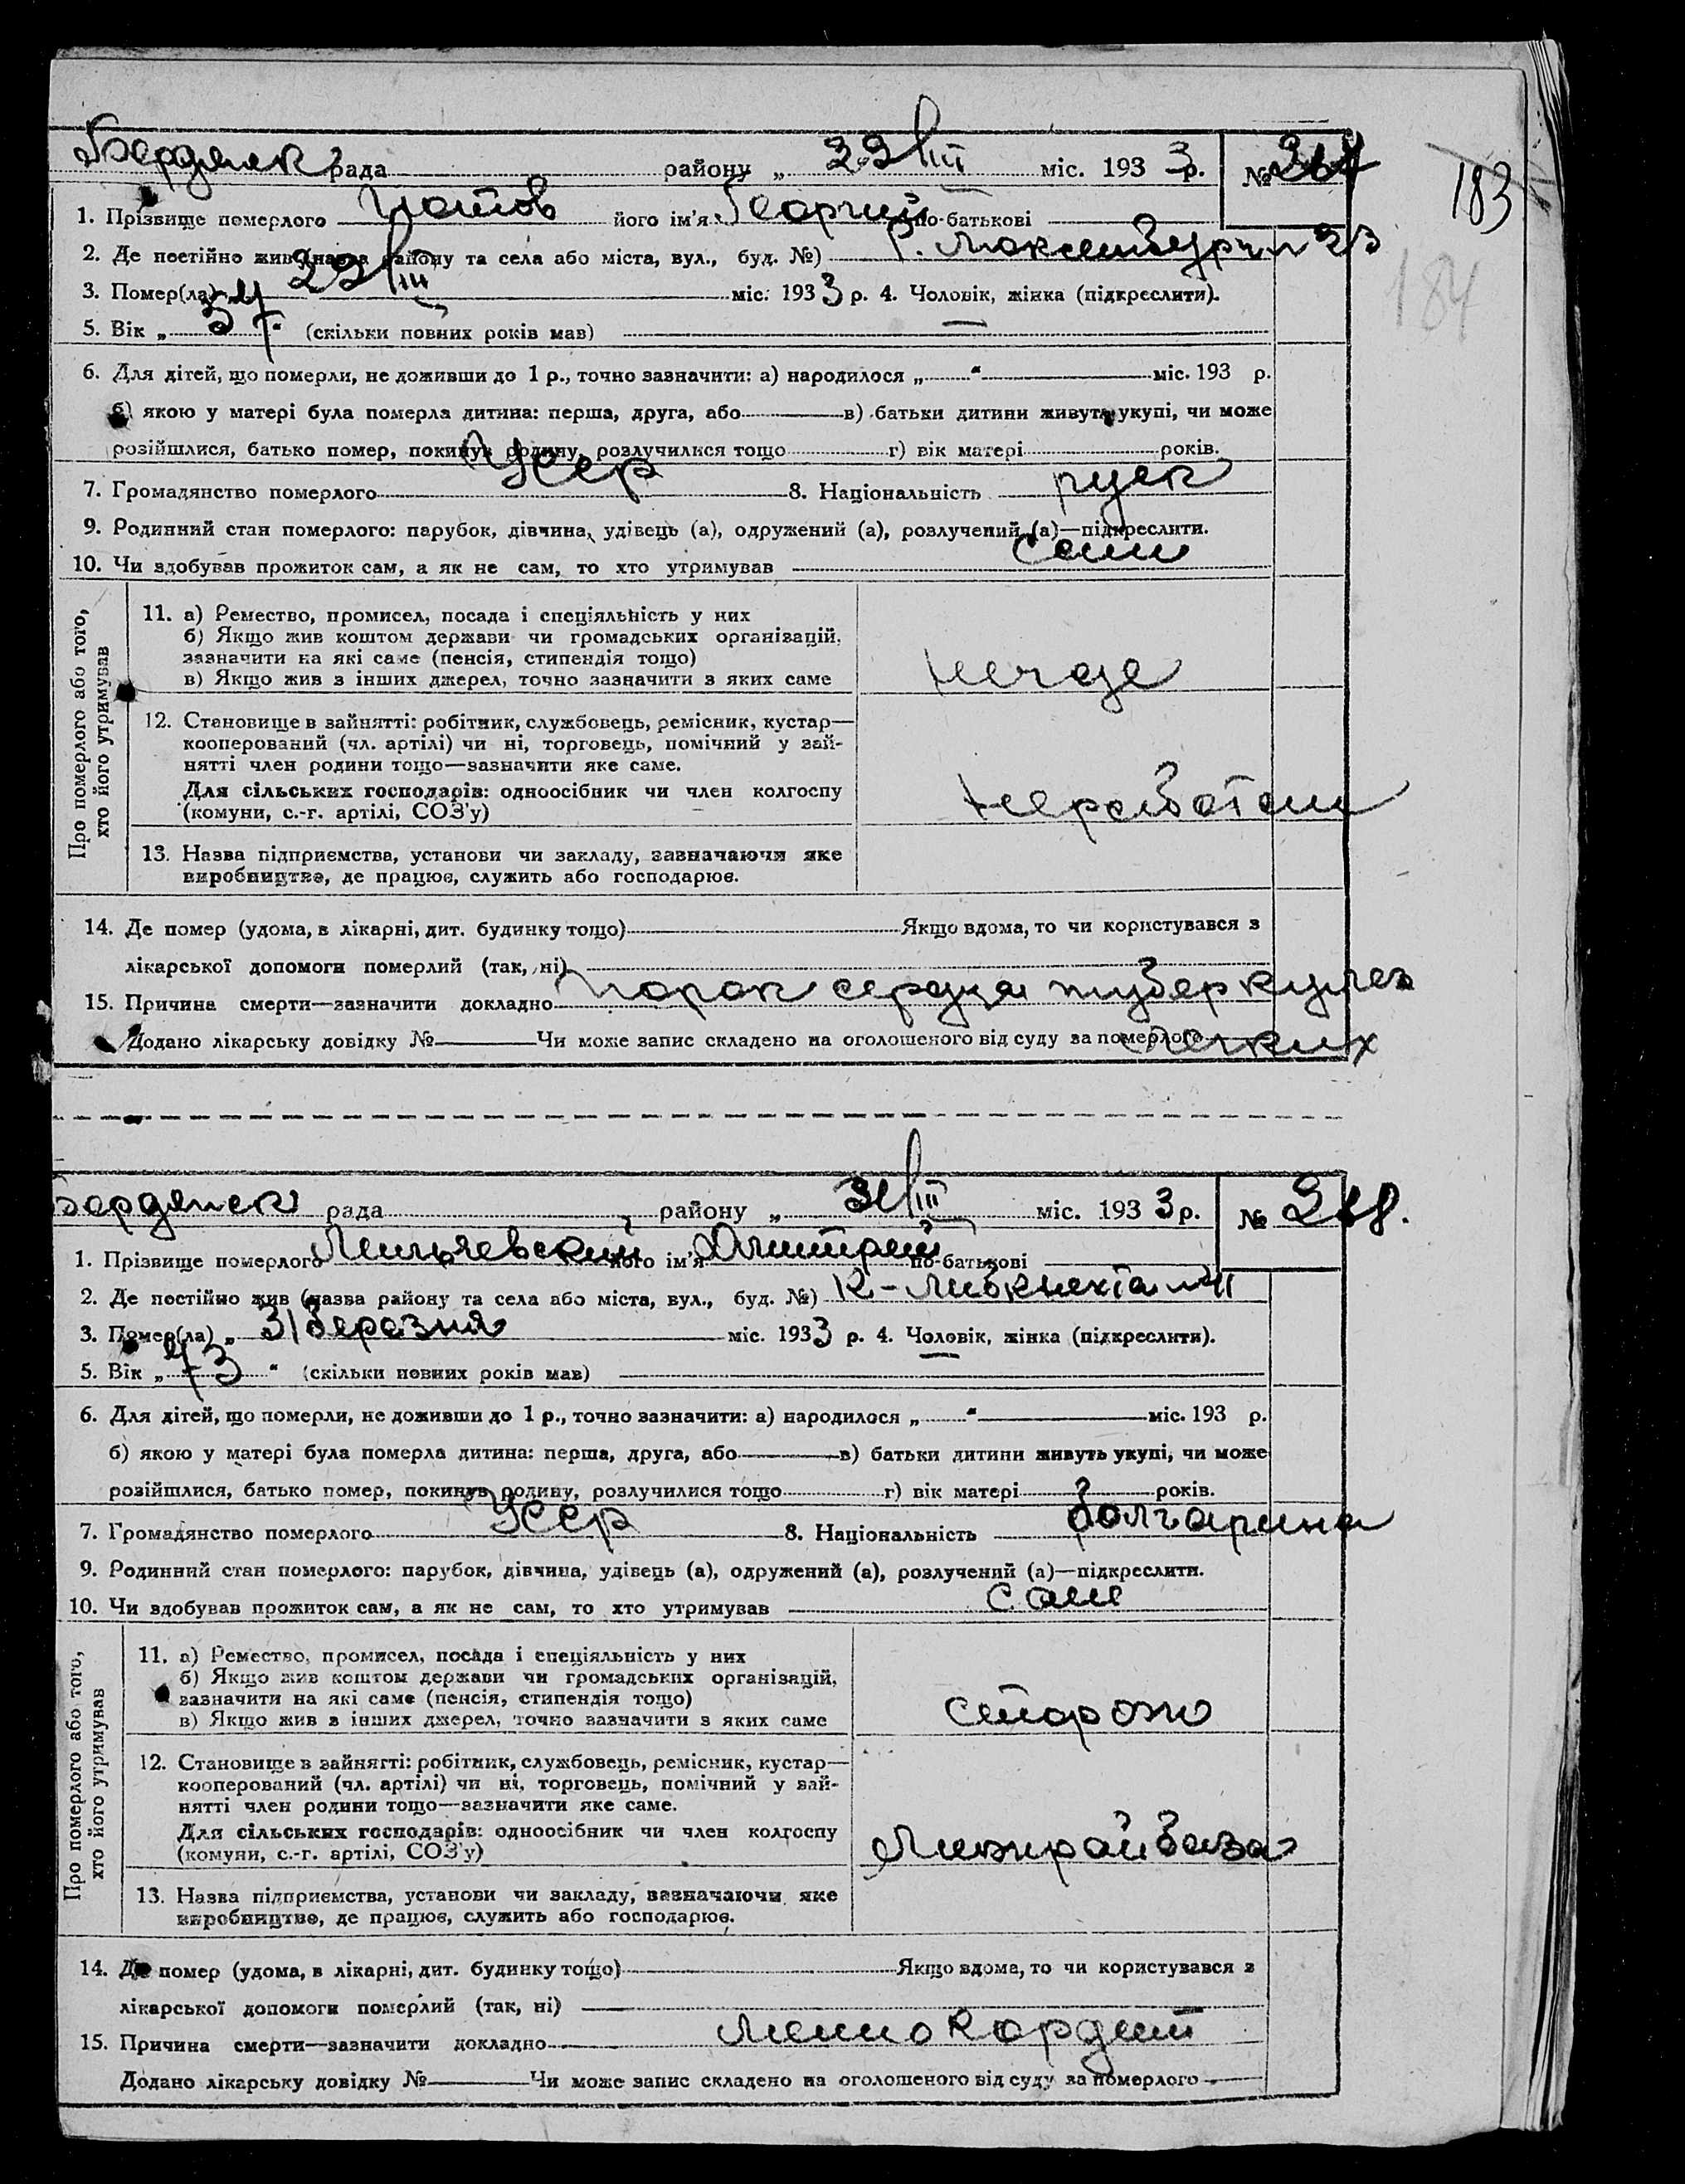 Бердянск рада района „ 22/III міс. 193 3 р. № 267
183
1. Прізвище померлого Иотов його ім'я Георгий по-батькові
2. Де постійно жив (назва району та села або міста, вул., буд. №) Р. Люксембург № 23
184
3. Помер(ла) „ 22/III міс. 193 3 р. 4. Чоловік, жінка (підкреслити).
5. Вік „ 57 (скільки повних років мав)
6. Для дітей, що померли, не доживши до 1 р., точно зазначити: а) народилося „ “ міс. 193 р.
б) якою у матері була померла дитина: перша, друга, або в) батьки дитини живуть укупі, чи може
розійшлися, батько помер, покинув родину, розлучилися тощо г) вік матері років.
7. Громадянство померлого Усср 8. Національність руск
9. Родинний стан померлого: парубок, дівчина, удівець (а), одружений (а), розлучений (а)—підкреслити.
10. Чи здобував прожиток сам, а як не сам, то хто утримував Сам
Про померлого або того,
хто його утримував
11. а) Ремество, промисел, посада і спеціяльність у них
б) Якщо жив коштом держави чи громадських організацій,
зазначити на які саме (пенсія, стипендія тощо)
в) Якщо жив з інших джерел, точно зазначити з яких саме
негде
12. Становище в зайнятті: робітник, службовець, ремісник, кустар—
кооперований (чл. артілі) чи ні, торговець, помічний у зай-
нятті член родини тощо—зазначити яке саме.
Для сільських господарів: одноосібник чи член колгоспу
(комуни, с.-г. артілі, СОЗ'у)
13. Назва підприємства, установи чи закладу, зазначаючи яке
виробництво, де працює, служить або господарює.
14. Де помер (удома, в лікарні, дит. будинку тощо) Якщо вдома, то чи користувався з
лікарської допомоги померлий (так, ні)
15. Причина смерти—зазначити докладно порок сердца туберкулез
легких
Додано лікарську довідку № Чи може запис складено на оголошеного від суду за померлого
Бердянск рада району „ 31/III міс. 193 3 р. № 268.
1. Прізвище померлого його ім'я Дмитрий по-батькові
2. Де постійно жив (назва району та села або міста, вул., буд. №) К-Либкнехта № 41
3. Помер(ла) „ 31 березня міс. 193 3 р. 4. Чоловік, жінка (підкреслити).
5. Вік „ 73 “ (скільки повних років мав)
6. Для дітей, що померли, не доживши до 1 р., точно зазначити: а) народилося „ “ міс. 193 р.
б) якою у матері була померла дитина: перша, друга, або в) батьки дитини живуть укупі, чи може
розійшлися, батько помер, покинув родину, розлучилися тощо г) вік матері років.
7. Громадянство померлого Усср 8. Національність болгарина
9. Родинний стан померлого: парубок, дівчина, удівець (а), одружений (а), розлучений (а)—підкреслити.
10. Чи здобував прожиток сам, а як не сам, то хто утримував сам
Про померлого або того,
хто його утримував
11. а) Ремество, промисел, посада і спеціяльність у них
б) Якщо жив коштом держави чи громадських організацій,
зазначити на які саме (пенсія, стипендія тощо)
в) Якщо жив з інших джерел, точно зазначити з яких саме
сторож
12. Становище в зайнятті: робітник, службовець, ремісник, кустар—
кооперований (чл. артілі) чи ні, торговець, помічний у зай-
нятті член родини тощо—зазначити яке саме.
Для сільських господарів: одноосібник чи член колгоспу
(комуни, с.-г. артілі, СОЗ'у)
Межрайбаза
13. Назва підприємства, установи чи закладу, зазначаючи яке
виробництво, де працює, служить або господарює.
14. Де помер (удома, в лікарні, дит. будинку тощо) Якщо вдома, то чи користувався з
лікарської допомоги померлий (так, ні)
15. Причина смерти—зазначити докладно Миокордит
Додано лікарську довідку № Чи може запис складено на оголошеного від суду за померлого